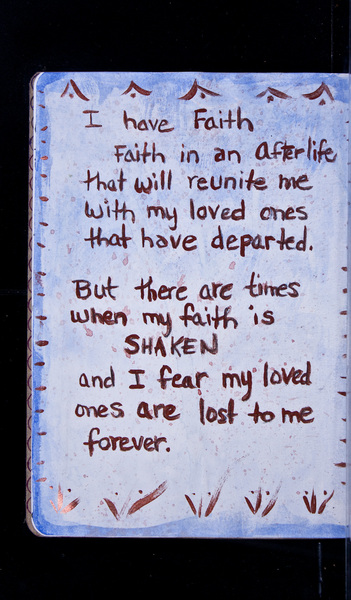 I have Faith
Faith in an afterlife
that will reunite me
with my loved ones
that have departed.
But there are times
when my faith is
SHAKEN
and I fear my loved
ones are lost to me
forever.